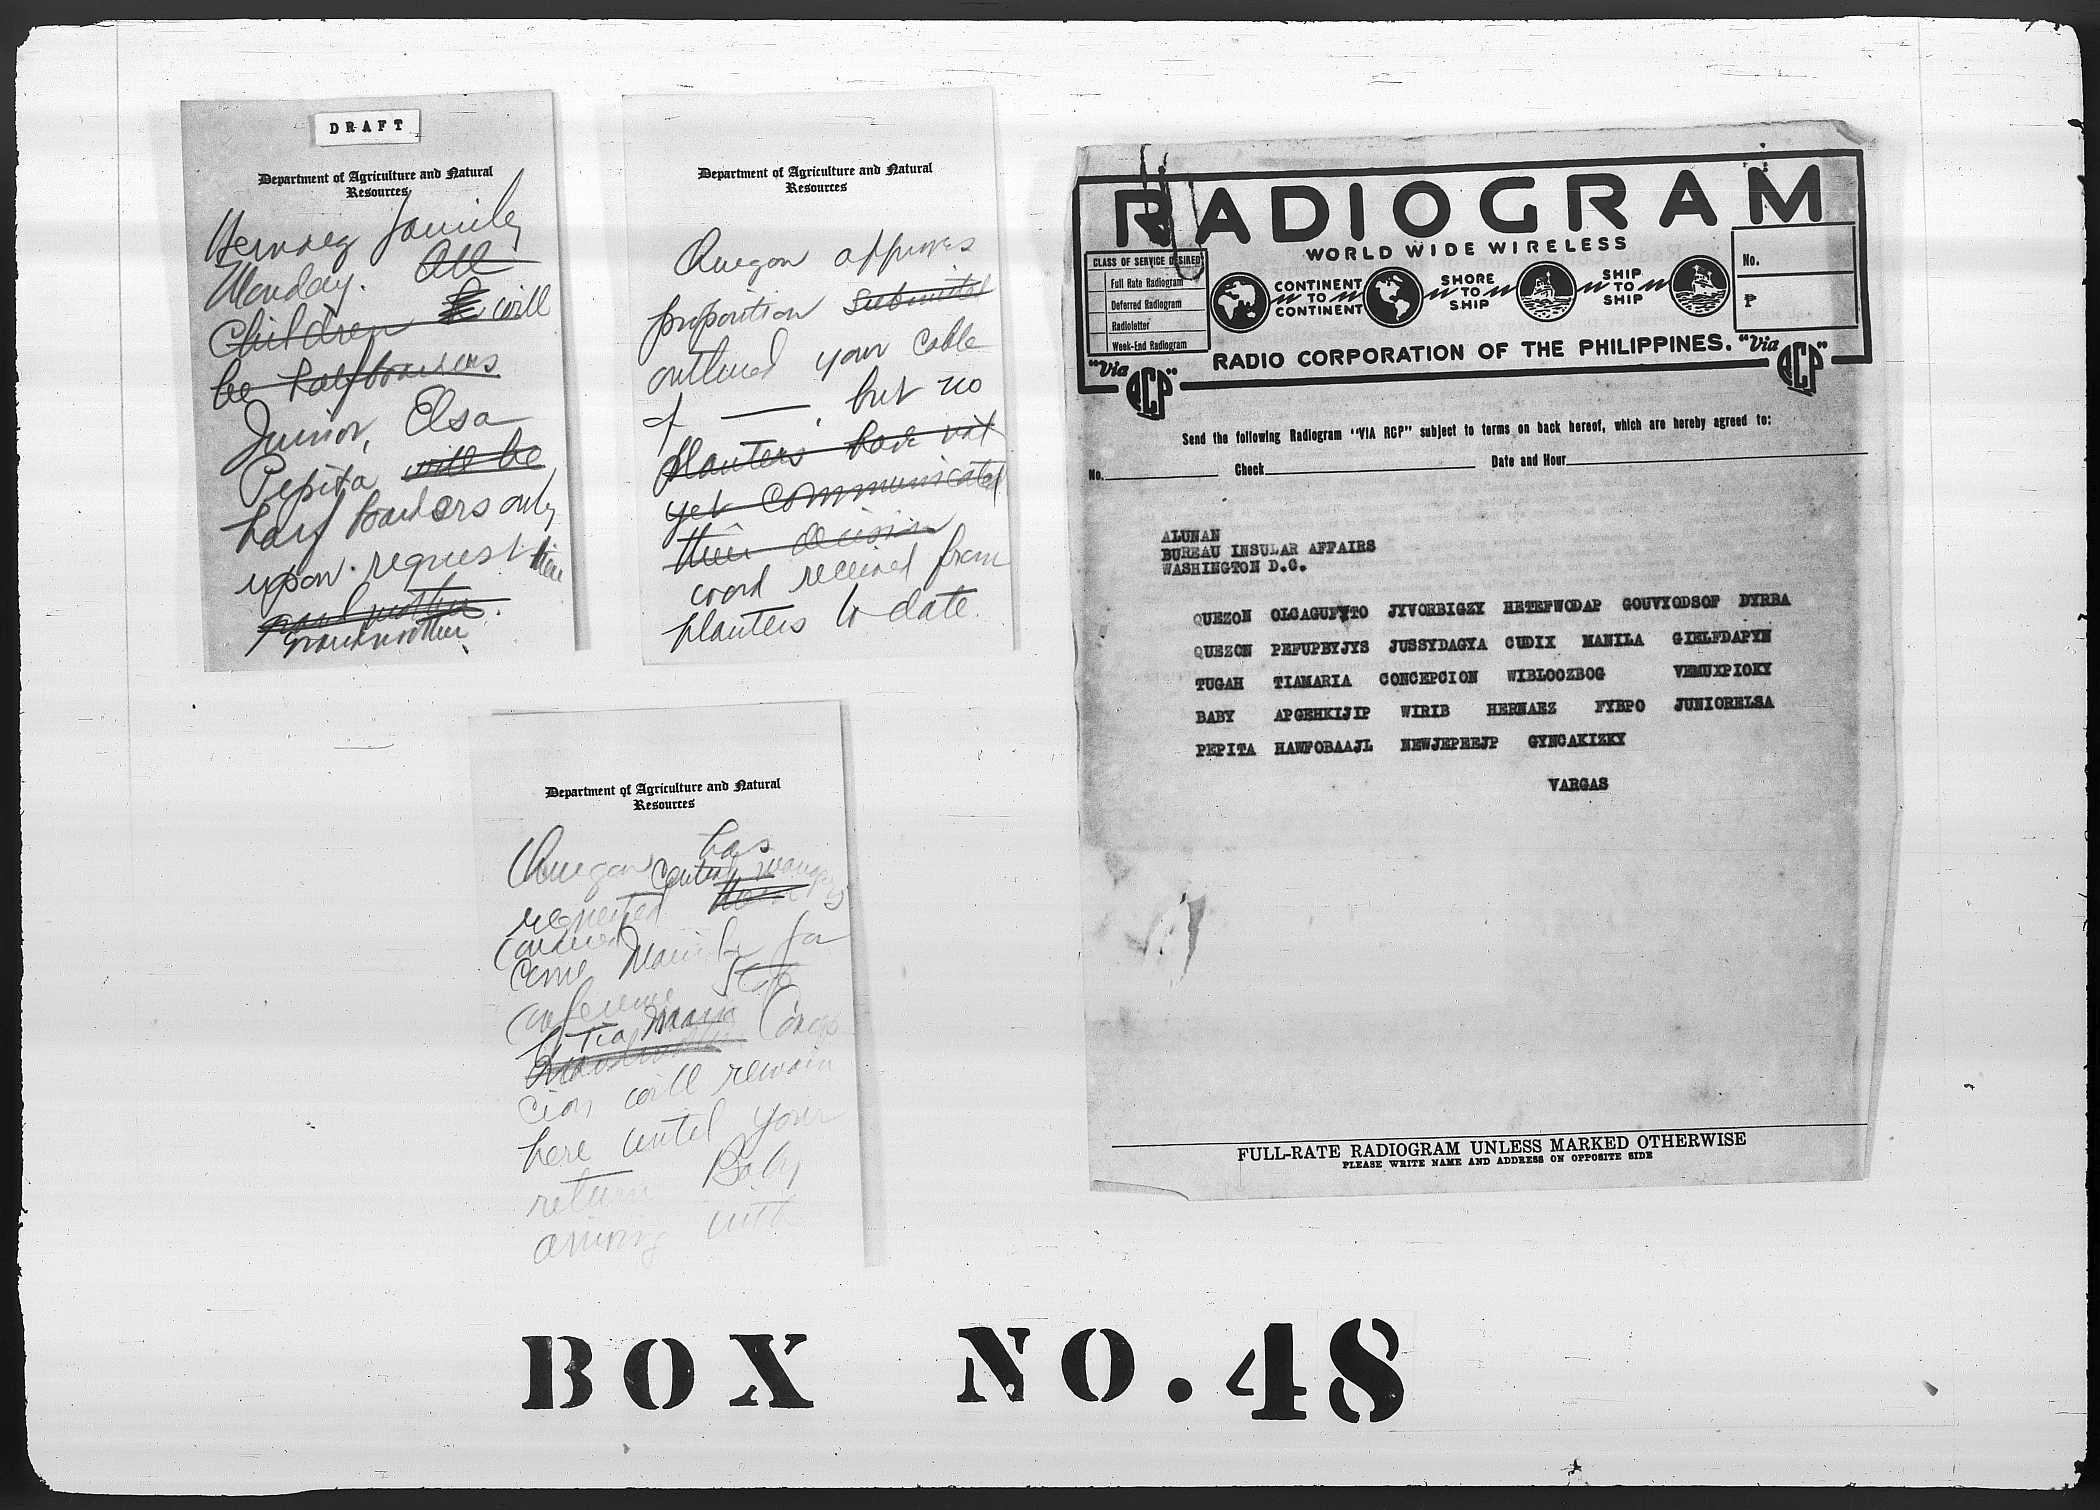 DRAFT
Department of Agriculture and Natural
Resources
Hernaez family
Monday. All
Children will
be half boarders
Junior, Elsa
Pepita will be
half boarders only
upon request their
grandmother.
Grandmother
Department of Agriculture and Natural
Resources
Quezon approves
proposition submitted
outlined your cable
of —, but no
planters have not
yet communicated
their decision
word received from
planters to date.
Department of Agriculture and Natural
Resources
Quezon has
central
requested
come Manila for
conference
Tia Maria Concep
cion will remain
here until your
return Baby
arriving with
RADIOGRAM
WORLD WIDE WIRELESS
CLASS OF SERVICE DESIRED
Full Rate Radiogram
Deferred Radiogram
Radioletter
Week-End Radiogram
CONTINENT
TO
CONTINENT
SHORE
TO
SHIP
SHIP
TO
SHIP
No.
₱
RADIO CORPORATION OF THE PHILIPPINES.
"Via RCP"
"Via RCP"
Send the following Radiogram "VIA RCP" subject to terms on back hereof, which are hereby agreed to:
No. Check Date and Hour
ALUNAN
BUREAU INSULAR AFFAIRS
WASHINGTON D.C.
QUEZON OLCAGUFYTO JYVORBIGZY HETEFWODAP GOUVYODSOF DYRBA
QUEZON PEFUPBYJYS JUSSYDAGYA CUDIX MANILA GIELFDAPYN
TUGAH TIAMARIA CONCEPCION WIBLOOZBOG VEMUXPIOKY
BABY APGEHKIJIP WIRIB HERNAEZ FYBPO JUNIORELSA
PEPITA HAWFOBAAJL NEWJEPEEJP GYNCAKIZKY
VARGAS
FULL-RATE RADIOGRAM UNLESS MARKED OTHERWISE
PLEASE WRITE NAME AND ADDRESS ON OPPOSITE SIDE
BOX NO. 48